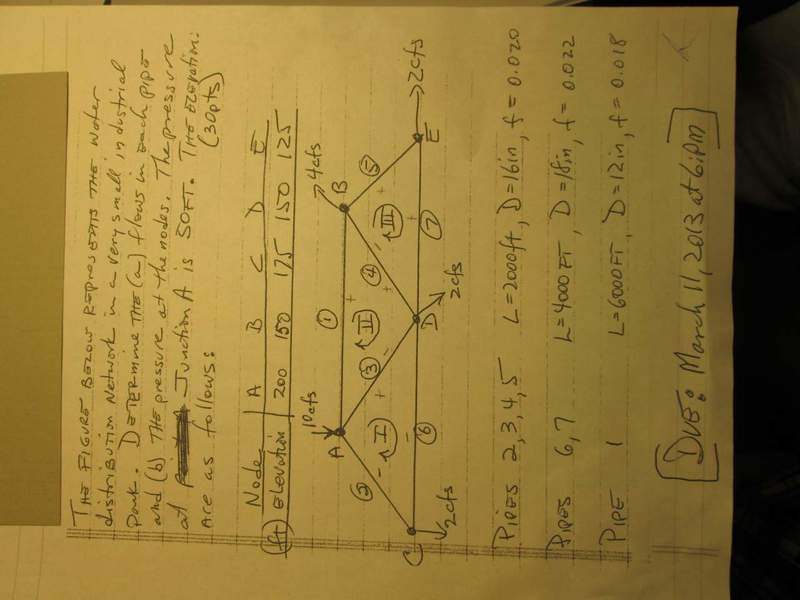 THE FIGURE BELOW REPRESENTS THE WATER
distribution Network in a very small industrial
Park. DETERMINE THE (a) flows in each pipe
and (b) THE pressure at the nodes. The pressure
at Junction A is 50FT. THE ELEVATION.
ARE as follows: (30pts)
Node A B C D E
(ft) ELEVATION 200 150 175 150 125
10cfs
4cfs
A
B
①
②
③
④
⑤
I
II
III
C
D
E
⑥
⑦
2cfs
2cfs
2cfs
PIPES 2,3,4,5 L=2000ft, D=16in, f=0.020
PIPES 6,7 L=4000FT, D=18in, f=0.022
PIPE 1 L=6000FT, D=12in, f=0.018
DUE: March 11, 2013 at 6:PM